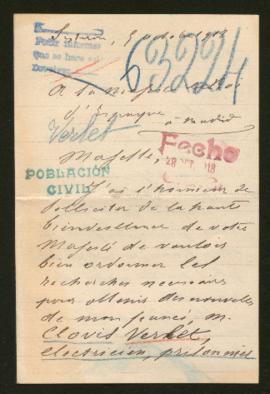 Pedir Informes
63224
à Madrid
Verlet
Fecho
28 OCT 1918
Majesté,
POBLACIÓN
CIVIL
J'ai l'honneur de
solliciter de la haute
bienveillance de votre
Majesté de vouloir
bien ordonner les
recherches necessaires
pour obtenir des nouvelles
de mon fiancé, M.
Clovis Verlet,
électricien, prisonnier